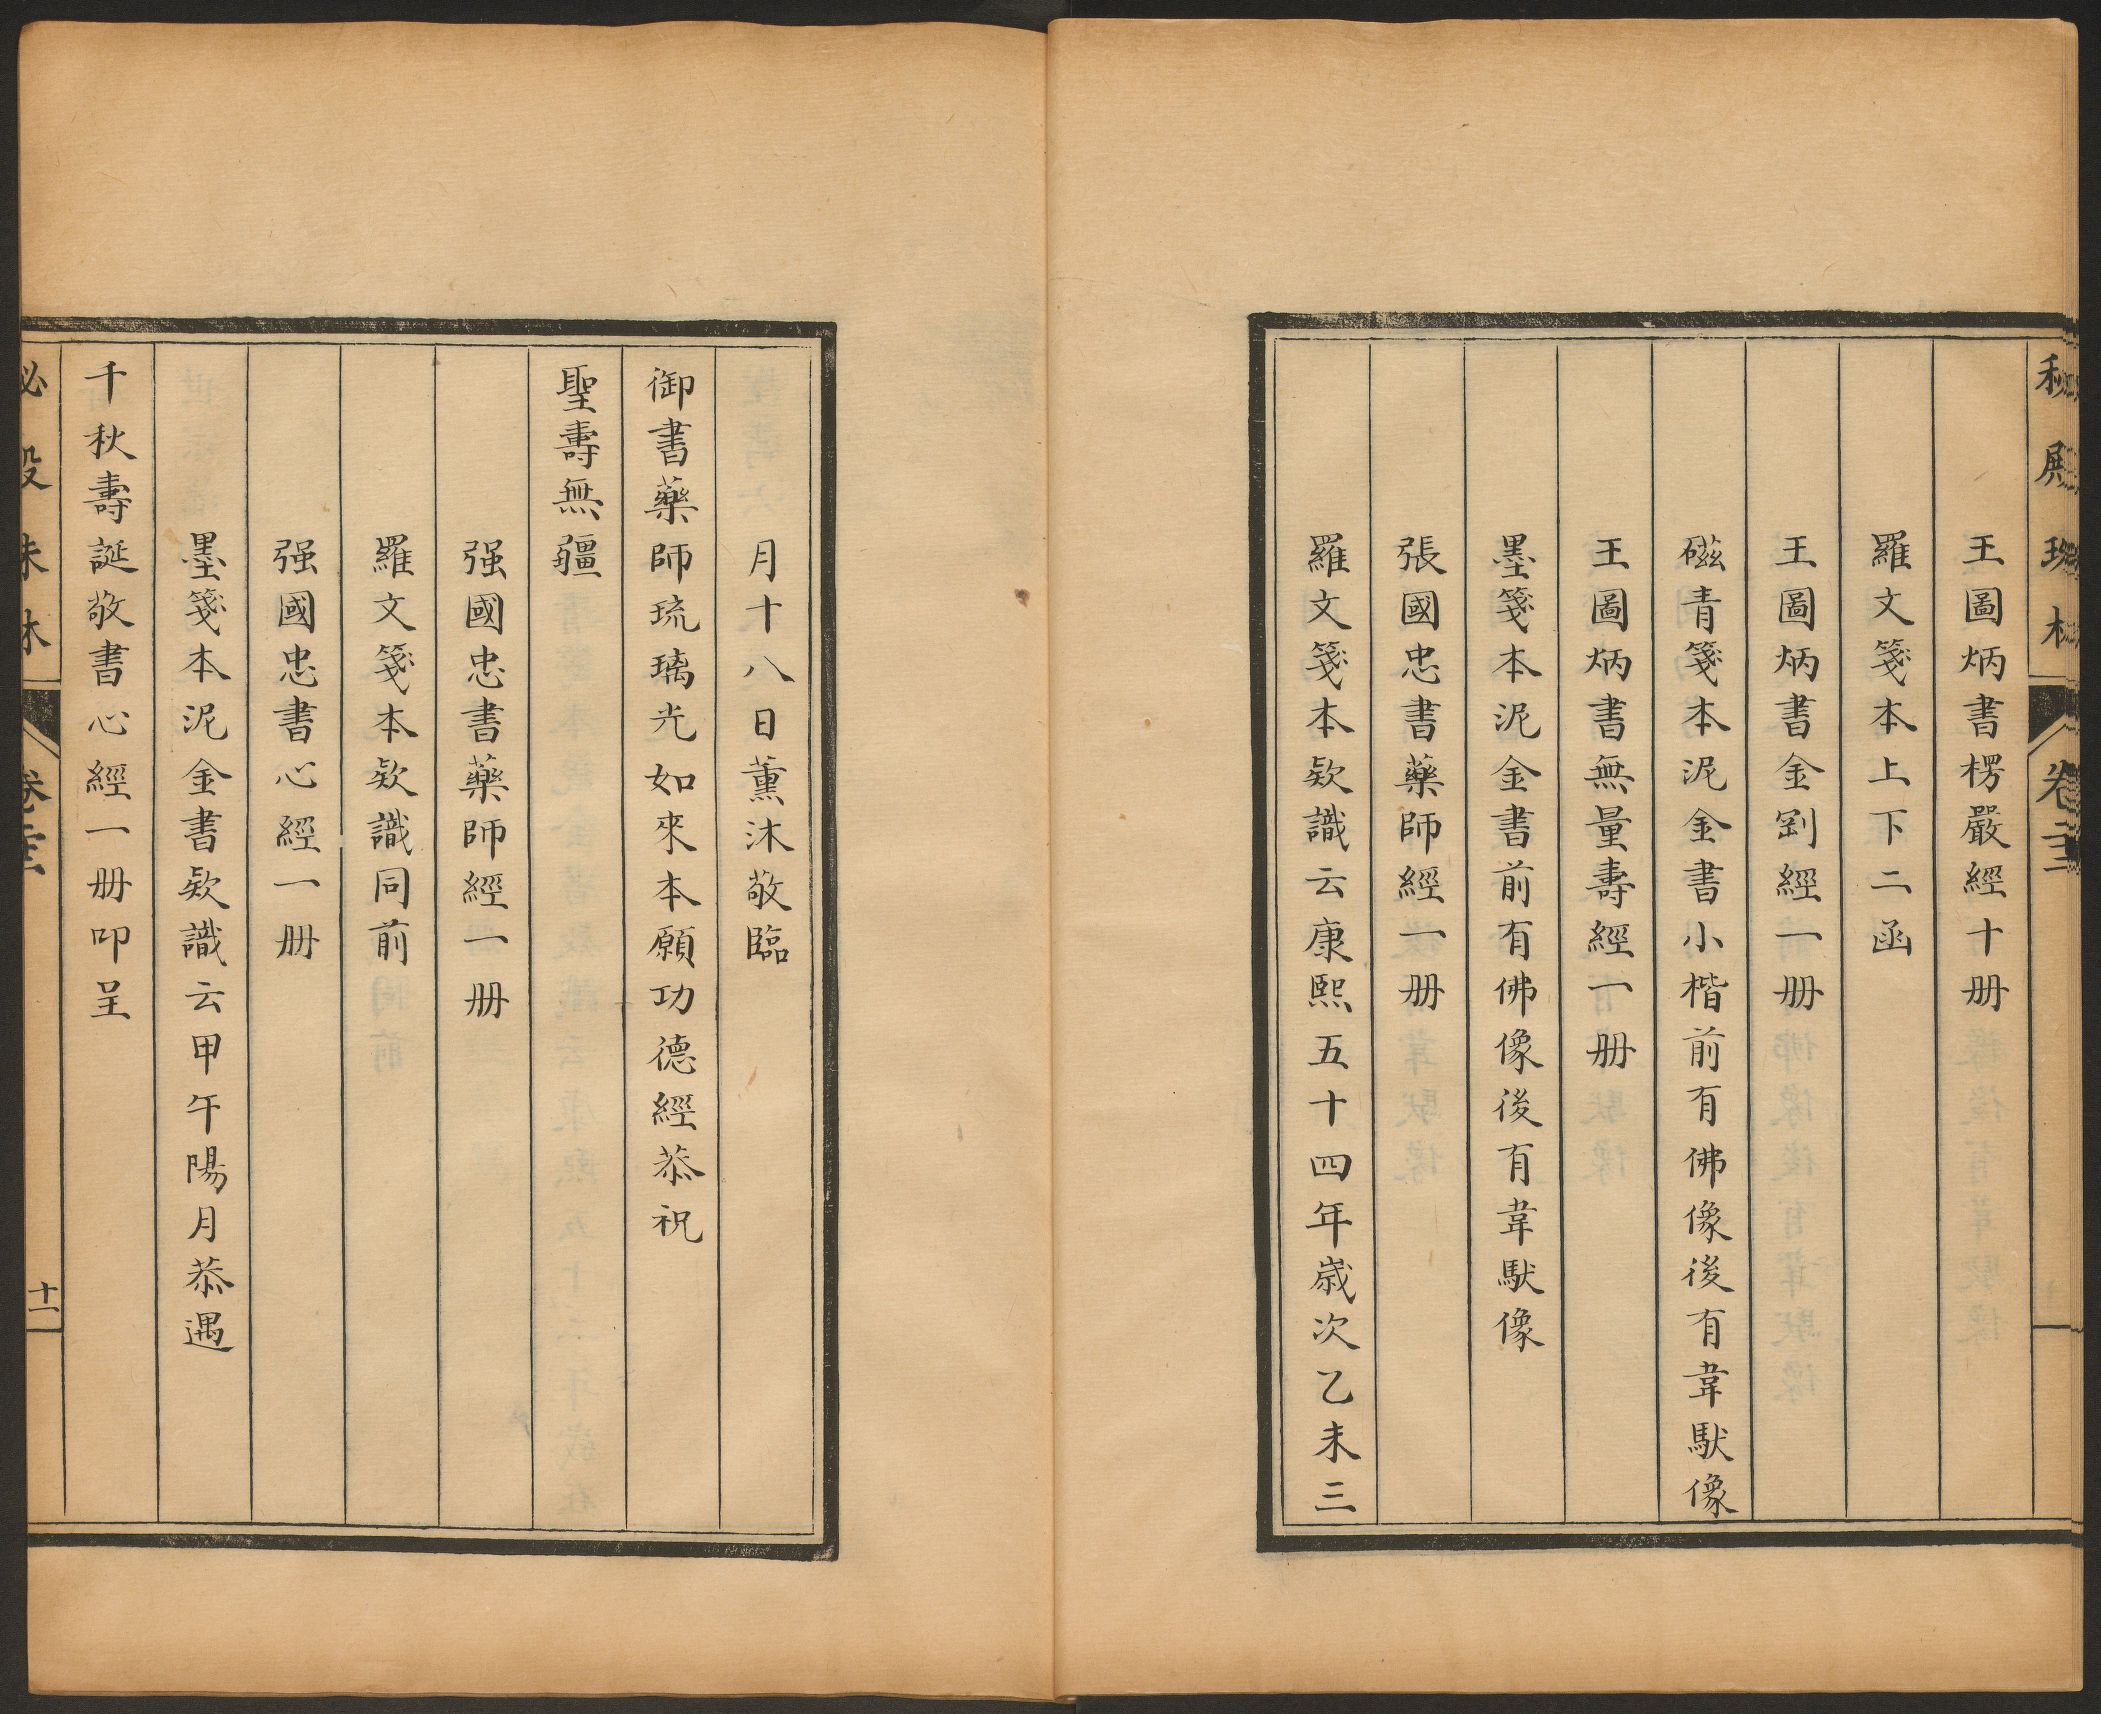 秘殿珠林
卷二三
王圖炳書楞嚴經十册
羅文箋本上下二函
王圖炳書金剛經一册
磁青箋本泥金書小楷前有佛像後有韋馱像
王圖炳書無量壽經一册
墨箋本泥金書前有佛像後有韋馱像
張國忠書藥師經一册
羅文箋本欵識云康熙五十四年歲次乙未三
月十八日薰沐敬臨
御書藥師琉璃光如來本願功德經恭祝
聖壽無疆
强國忠書藥師經一册
羅文箋本欵識同前
强國忠書心經一册
墨箋本泥金書欵識云甲午陽月恭遇
千秋壽誕敬書心經一册叩呈
秘殿珠林
十一